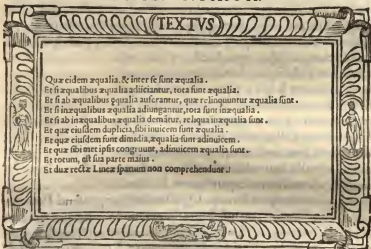 (TEXTVS)
Quæ eidem æqualia, & inter se sunt æqualia.
Et si æqualibus æqualia adiiciantur, tota sunt æqualia.
Et si ab æqualibus ęqualia auferantur, quæ relinquuntur æqualia sunt.
Et si inæqualibus æqualia adiungantur, tota sunt inæqualia.
Et si ab inæqualibus æqualia demātur, reliqua inæqualia sunt.
Et quæ eiusdem duplicia, sibi inuicem sunt æqualia.
Et quæ eiusdem sunt dimidia, æqualia sunt adinuicem.
Et quæ sibi met ipsis congruunt, adinuicem æqualia sunt.
Et totum, est sua parte maius.
Et duæ rectæ Lineæ spatium non comprehendunt.